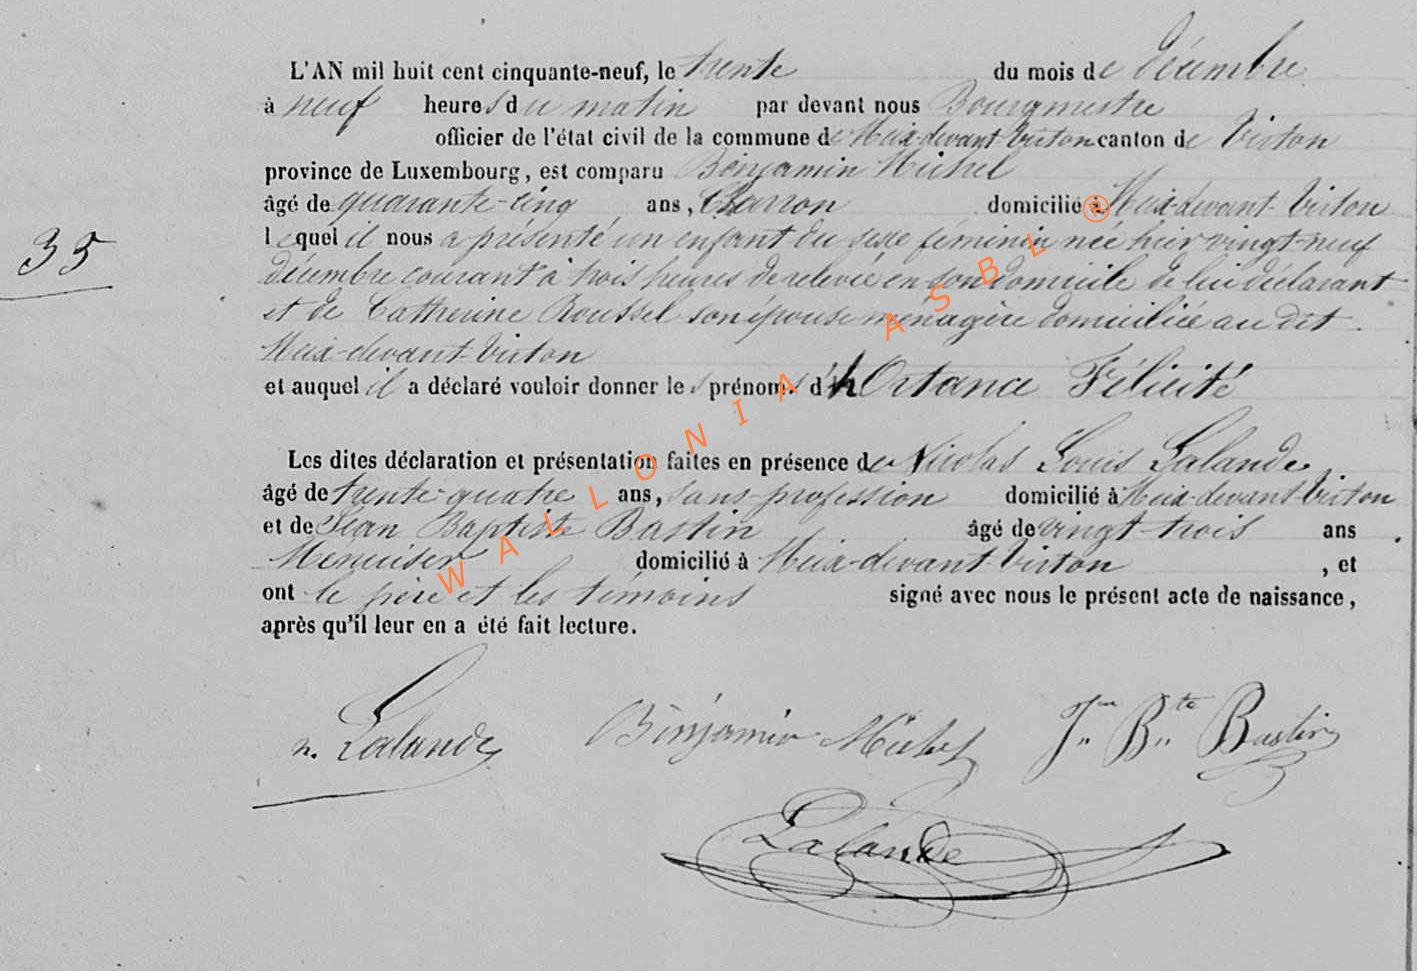 L'AN mil huit cent cinquante-neuf, le trente du mois de décembre
à neuf heures du matin par devant nous Bourgmestre
officier de l'état civil de la commune de Meix-devant-Virton canton de Virton
province de Luxembourg, est comparu Benjamin Michel
âgé de quarante-cinq ans, Charron domicilié à Meix-devant-Virton
lequel il nous a présenté un enfant du sexe féminin née hier vingt-neuf
décembre courant à trois heures de relevée en son domicile de lui déclarant
et de Catherine Roussel son épouse ménagère domiciliée au dit
Meix-devant-Virton
et auquel il a déclaré vouloir donner les prénoms d'hOrtance Félicité
35
Les dites déclaration et présentation faites en présence de Nicolas Louis Lalande
âgé de trente-quatre ans, sans profession domicilié à Meix-devant-Virton
et de Jean Baptiste Bastin âgé de vingt-trois ans
Menuisier domicilié à Meix-devant-Virton, et
ont le père et les témoins signé avec nous le présent acte de naissance,
après qu'il leur en a été fait lecture.
n. Lalande Benjamin Michel Jn Bte Bastin
Lalande
WALLONIA ASBL ®